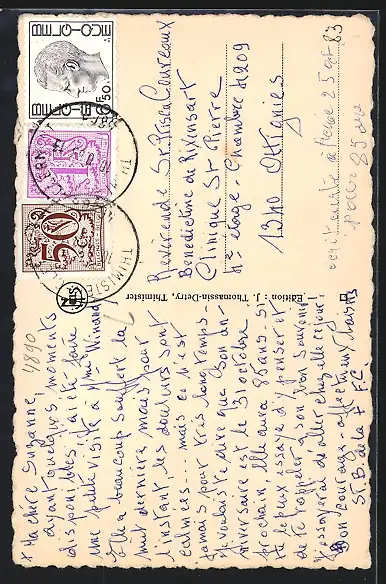 + Ma chère Suzanne,
ayant quelques moments
disponibles, ai été faire
une petite visite à Mme Winand
Elle a beaucoup souffert la
nuit dernière mais pour
l'instant, les douleurs sont
calmées... mais ce n'est
jamais pour très longtemps -
Je voulais te dire que son an-
niversaire est le 31 octobre
prochain, elle aura 85 ans. Si
tu le peux, essaye d'y penser et
de te rappeler à son bon souvenir
J'essayerai d'aller chez elle ce jour
Bon courage - affectueux baisers
4890
Edition J. Thomassin-Detry, Thimister
Révérende Sr. Prisca
Bénédictine de Rixensart
Clinique St Pierre
4e étage - Chambre 4209
1340 Ottignies
25 oct 83
pour 85 ans
BELGIQUE BELGIE
6F50
1F
50
THIMISTER